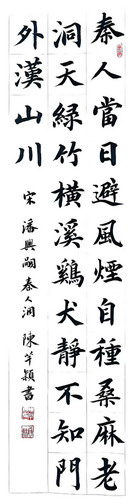 秦人當日避風煙自種桑麻老
洞天綠竹橫溪鷄犬靜不知門
外漢山川
宋潘興嗣秦人洞陳芊穎書